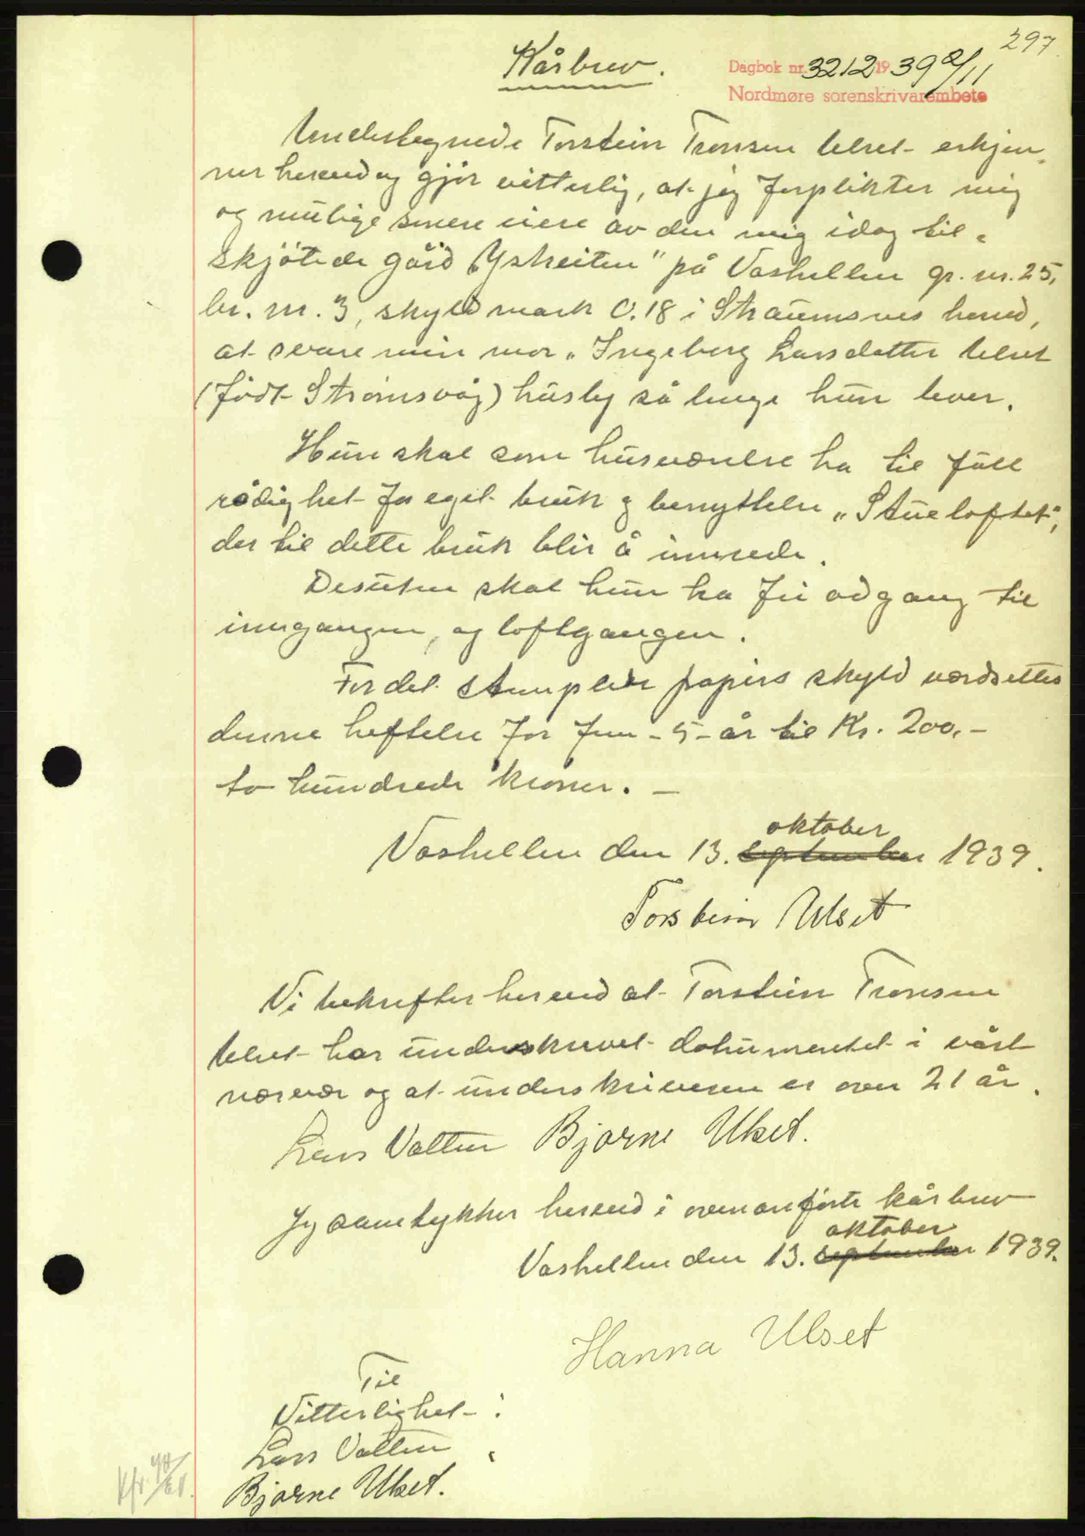 297
Kårbrev.
Dagbok nr. 3212 1939 2/11
Nordmøre sorenskrivarembete
Undertegnede Torstein Tronsen Ulset erkjen-
ner herved og gjør vitterlig, at jeg forplikter mig
og mulige senere eiere av den mig idag til-
skjøtede gård "Ysteiten" på Vashellen gr. nr. 25,
br. nr. 3, skyld mark 0.18 i Straumsnes herred,
at svare min mor, Ingeborg Larsdatter Ulset
(født Strømsvåg) husly så lenge hun lever.
Hun skal som husværelse ha til full
rådighet for eget bruk og benyttelse "Stueloftet",
der til dette bruk blir å innrede.
Desuten skal hun ha fri adgang til
inngangen, og loftgangen.
For det stemplede papirs skyld verdsettes
denne heftelse for fem - 5 - år til Kr. 200,-
to hundrede kroner. -
oktober
Vashellen den 13. september 1939.
Torstein Ulset
Vi bekrefter herved at Torstein Tronsen
Ulset har underskrevet dokumentet i vårt
nærvær og at underskriveren er over 21 år.
Lars Vatten Bjarne Ulset.
Jeg samtykker herved i ovenanførte kårbrev
oktober
Vashellen den 13. september 1939.
Hanna Ulset
Til
Vitterlighet:
Lars Vatten
Bjarne Ulset.